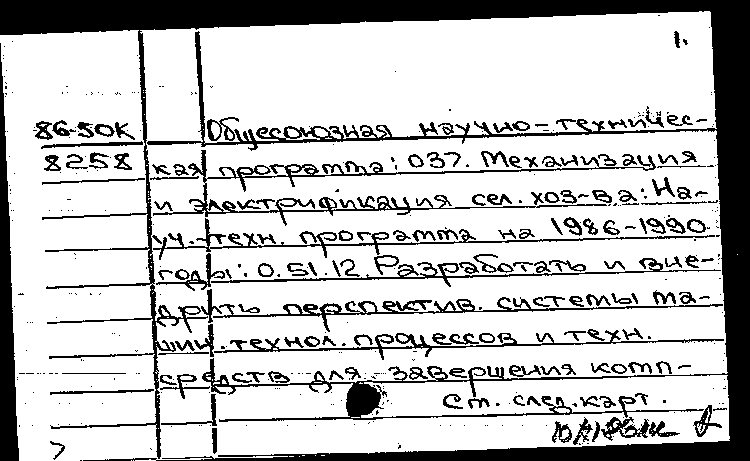 1.
86-50к Общесоюзная научно-техничес-
8258 кая программа: 037. Механизация
и электрификация сел. хоз-ва: На-
уч.-техн. программа на 1986-1990
годы: 0.51.12. Разработать и вне-
дрить перспектив. системы ма-
шин. технол. процессов и техн.
средств для завершения комп-
См. след. карт.